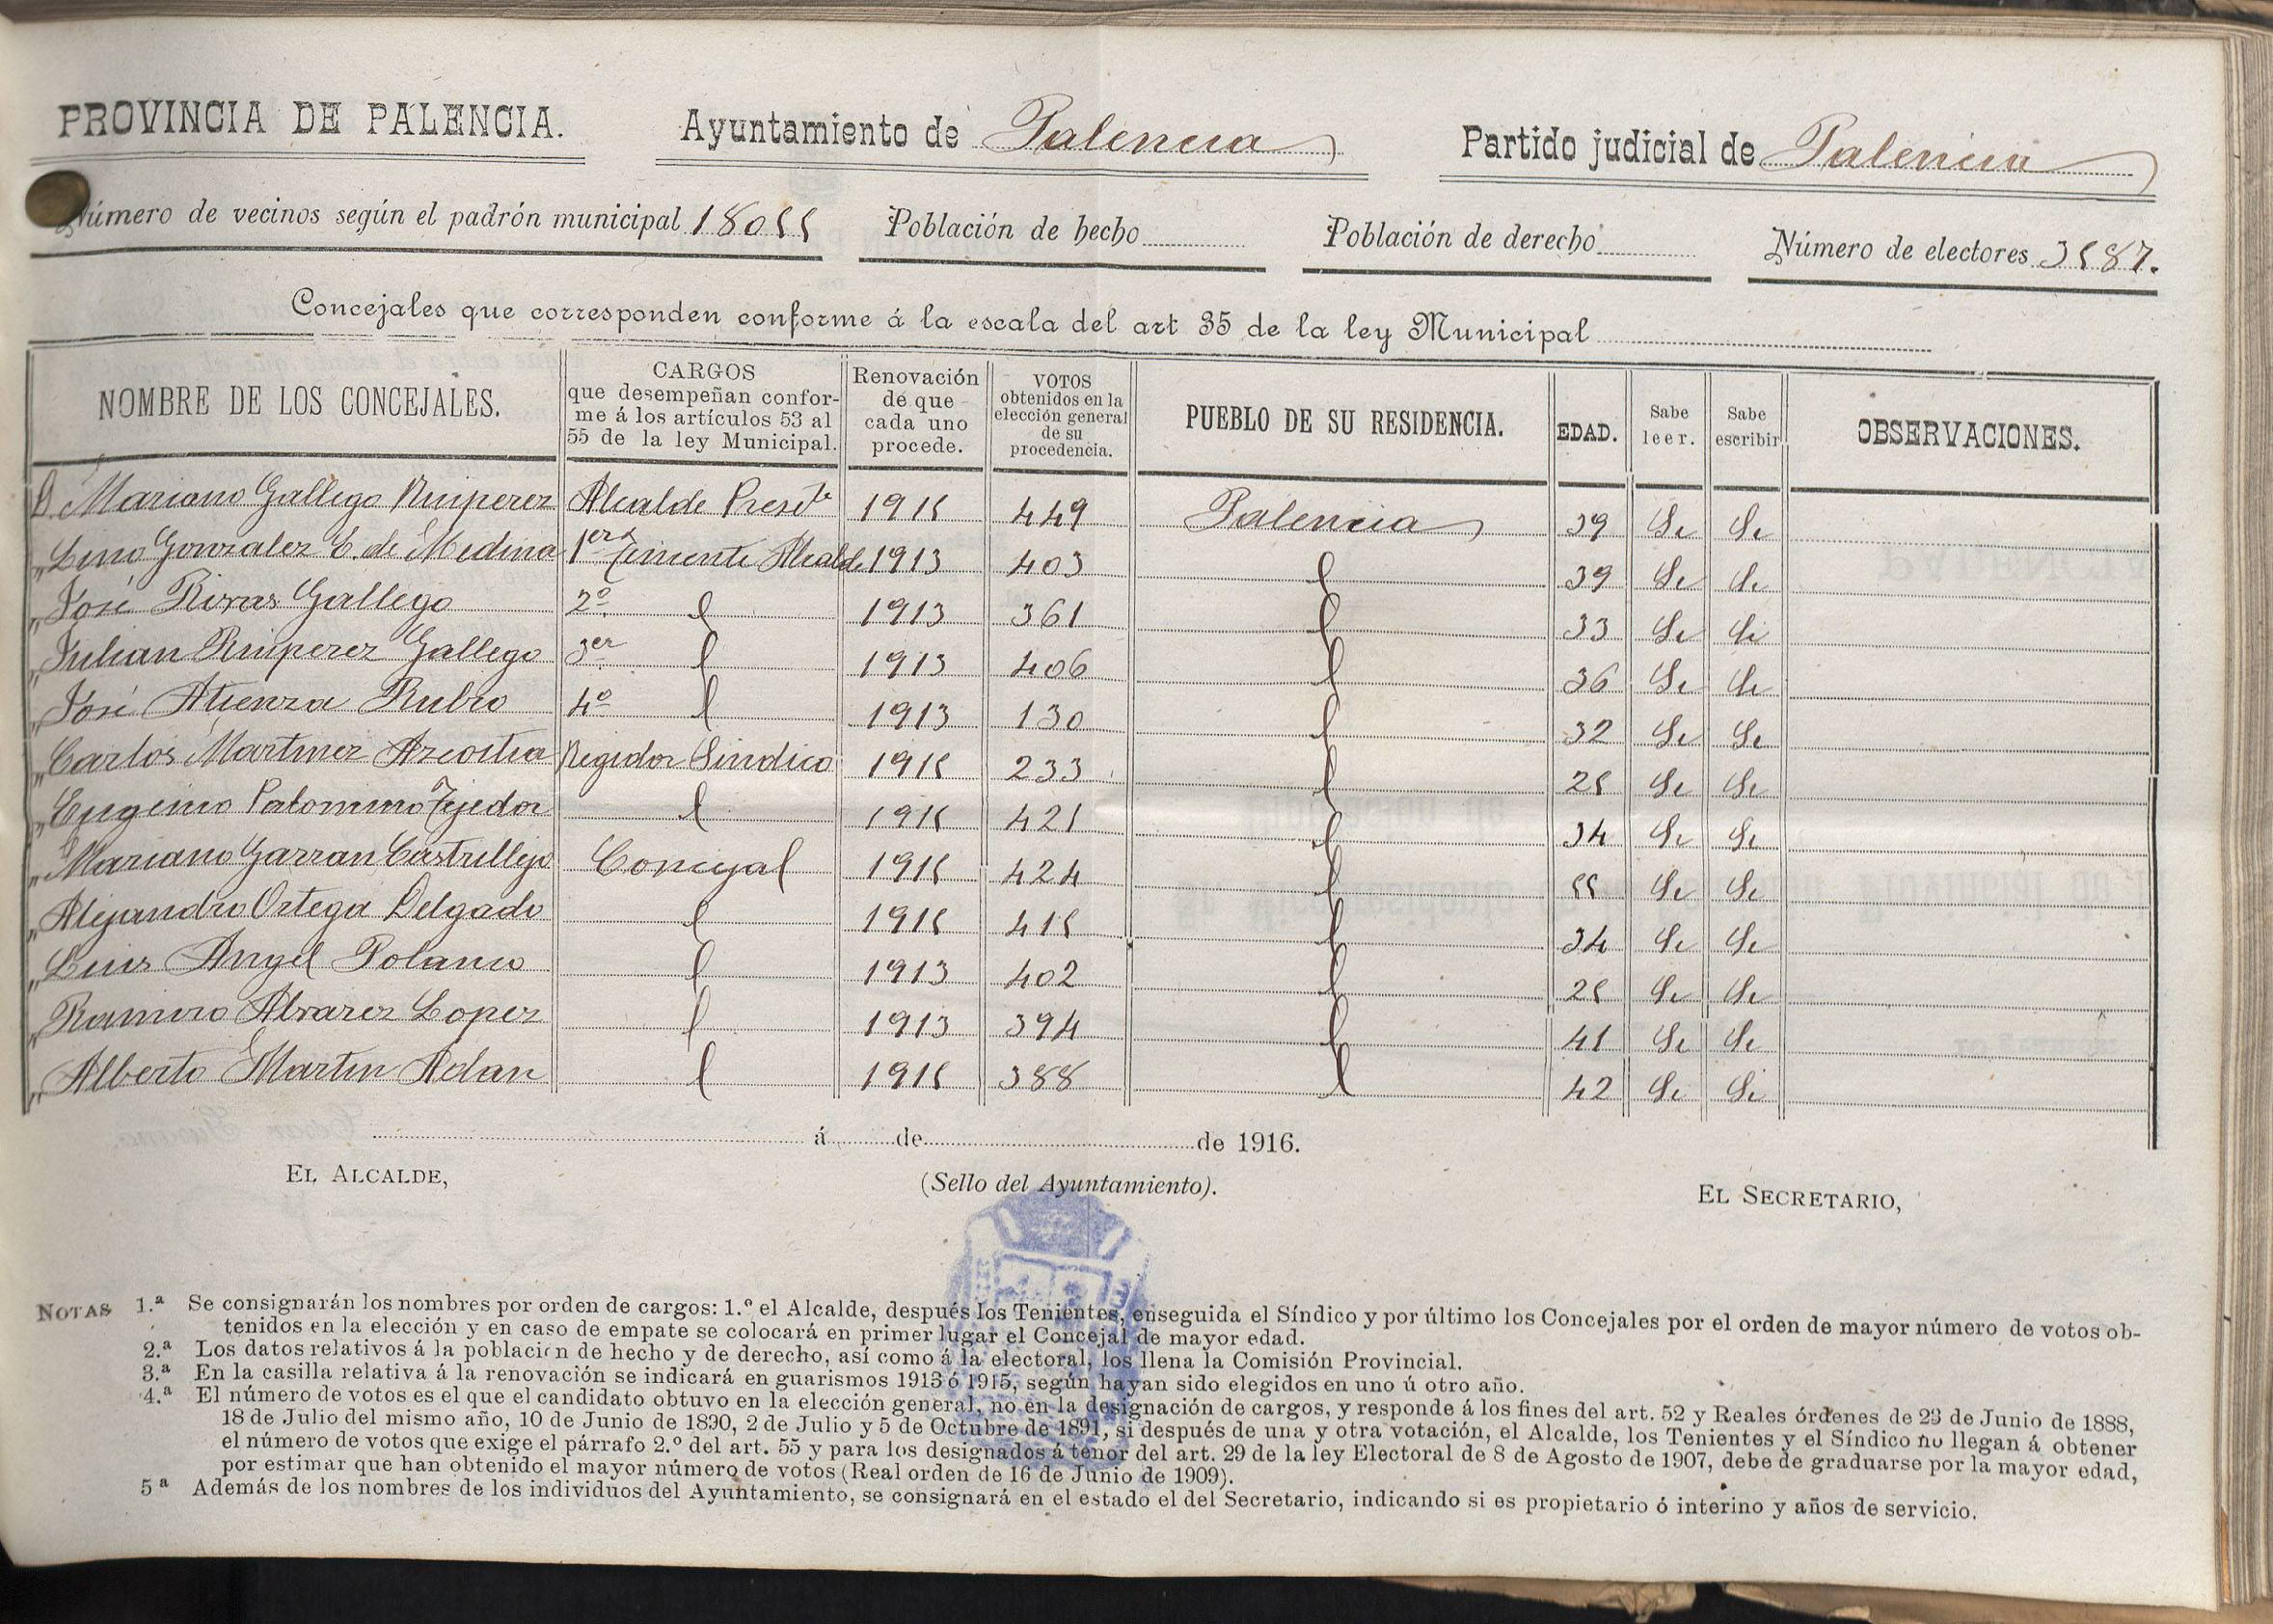 PROVINCIA DE PALENCIA. Ayuntamiento de Palencia Partido judicial de Palencia
Número de vecinos según el padrón municipal 18055 Población de hecho Población de derecho Número de electores 3587.
Concejales que corresponden conforme á la escala del art 35 de la ley Municipal
NOMBRE DE LOS CONCEJALES. CARGOS que desempeñan conforme á los artículos 53 al 55 de la ley Municipal. Renovación de que cada uno procede. VOTOS obtenidos en la elección general de su procedencia. PUEBLO DE SU RESIDENCIA. EDAD. Sabe leer. Sabe escribir OBSERVACIONES.
D. Mariano Gallego Ruiperez Alcalde Presete 1915 449 Palencia 39 Si Si
„ Lino Gonzalez E. de Medina 1er Teniente Alcalde 1913 403 39 Si Si
„ José Rivas Gallego 2º 1913 361 33 Si Si
„ Julian Ruiperez Gallego 3er 1913 406 36 Si Si
„ José Atienza Rubio 4º 1913 130 32 Si Si
„ Carlos Martinez Azcoitia Regidor Sindico 1915 233 25 Si Si
„ Eugenio Palomino Tejedor 1915 421 34 Si Si
„ Mariano Garran Castrillejo Concejal 1915 424 55 Si Si
„ Alejandro Ortega Delgado 1915 415 34 Si Si
„ Luis Angel Polanco 1913 402 25 Si Si
„ Ramiro Alvarez Lopez 1913 394 41 Si Si
„ Alberto Martin Adan 1915 388 42 Si Si
á de de 1916.
EL ALCALDE, (Sello del Ayuntamiento). EL SECRETARIO,
NOTAS 1.ª Se consignarán los nombres por orden de cargos: 1.º el Alcalde, después los Tenientes, enseguida el Síndico y por último los Concejales por el orden de mayor número de votos ob-
tenidos en la elección y en caso de empate se colocará en primer lugar el Concejal de mayor edad.
2.ª Los datos relativos á la población de hecho y de derecho, así como á la electoral, los llena la Comisión Provincial.
3.ª En la casilla relativa á la renovación se indicará en guarismos 1913 ó 1915, según hayan sido elegidos en uno ú otro año.
4.ª El número de votos es el que el candidato obtuvo en la elección general, no en la designación de cargos, y responde á los fines del art. 52 y Reales órdenes de 23 de Junio de 1888,
18 de Julio del mismo año, 10 de Junio de 1890, 2 de Julio y 5 de Octubre de 1891, si después de una y otra votación, el Alcalde, los Tenientes y el Síndico no llegan á obtener
el número de votos que exige el párrafo 2.º del art. 55 y para los designados á tenor del art. 29 de la ley Electoral de 8 de Agosto de 1907, debe de graduarse por la mayor edad,
por estimar que han obtenido el mayor número de votos (Real orden de 16 de Junio de 1909).
5ª Además de los nombres de los individuos del Ayuntamiento, se consignará en el estado el del Secretario, indicando si es propietario ó interino y años de servicio.